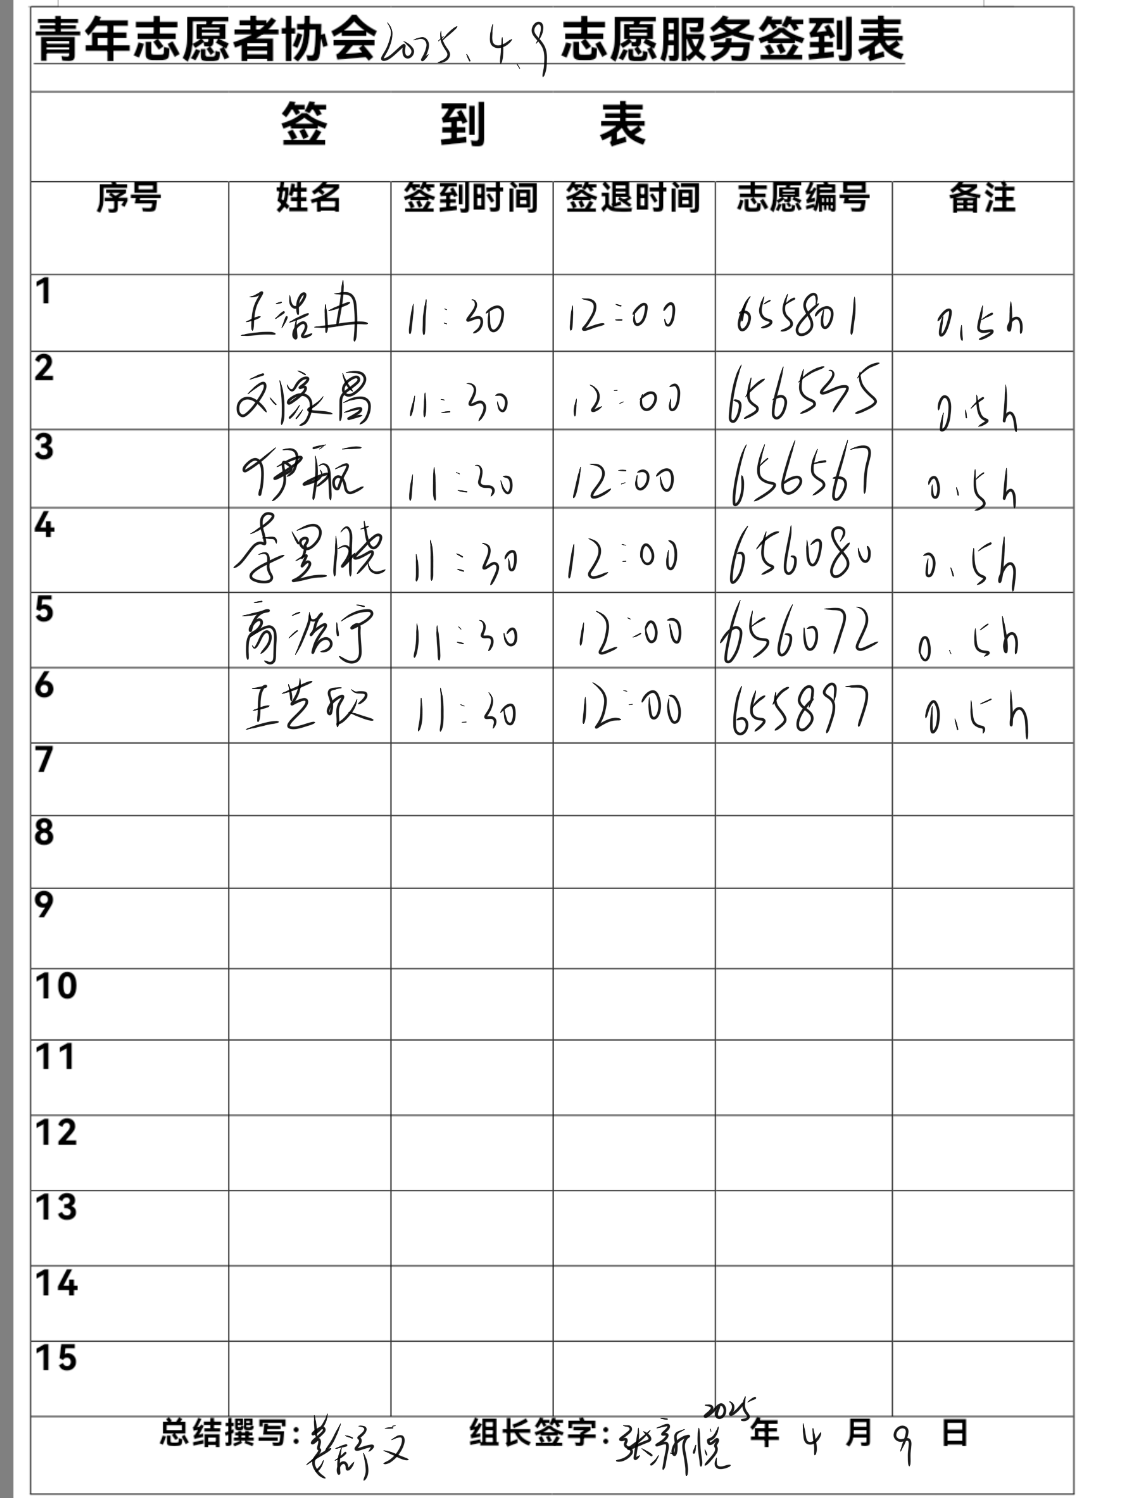 青年志愿者协会2025.4.9志愿服务签到表
签 到 表
序号 姓名 签到时间 签退时间 志愿编号 备注
1 王浩冉 11:30 12:00 655801 0.5h
2 刘家昌 11:30 12:00 656535 0.5h
3 伊航 11:30 12:00 656567 0.5h
4 李昱晓 11:30 12:00 656080 0.5h
5 高浩宁 11:30 12:00 656072 0.5h
6 王芝欣 11:30 12:00 655897 0.5h
7
8
9
10
11
12
13
14
15
总结撰写:姜舒文 组长签字:张新悦 2025年 4 月 9 日